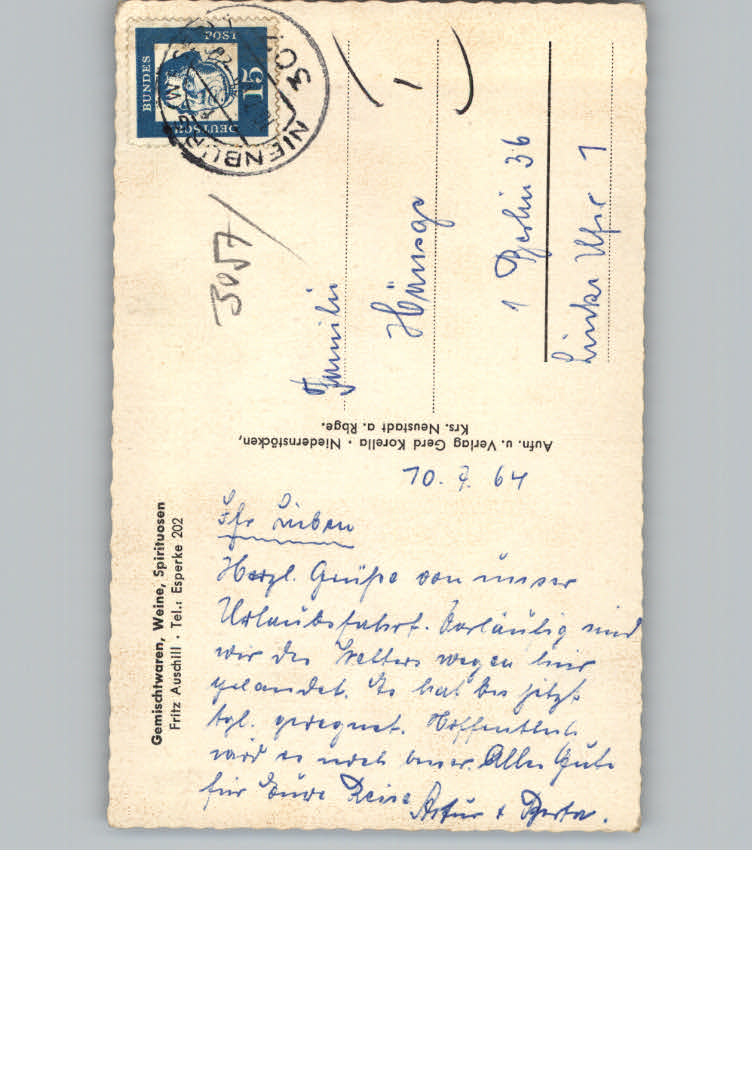 DEUTSCHE
BUNDES
POST
15
NIENBURG
3057
Familie
Hänsge
1 Berlin 36
Linke Ufer 1
Aufn. u. Verlag Gerd Korella · Niedernstöcken,
Krs. Neustadt a. Rbge.
Gemischtwaren, Weine, Spirituosen
Fritz Auschill · Tel.: Esperke 202
10. 7. 64
Ihr Lieben
Herzl. Grüße von unser
Urlaubsfahrt. Vorläufig sind
wir des Wetters wegen hier
gelandet. Es hat bis jetzt
tgl. geregnet. Hoffentlich
wird es noch besser. Alles Gute
für Eure Reise Artur + Berta.